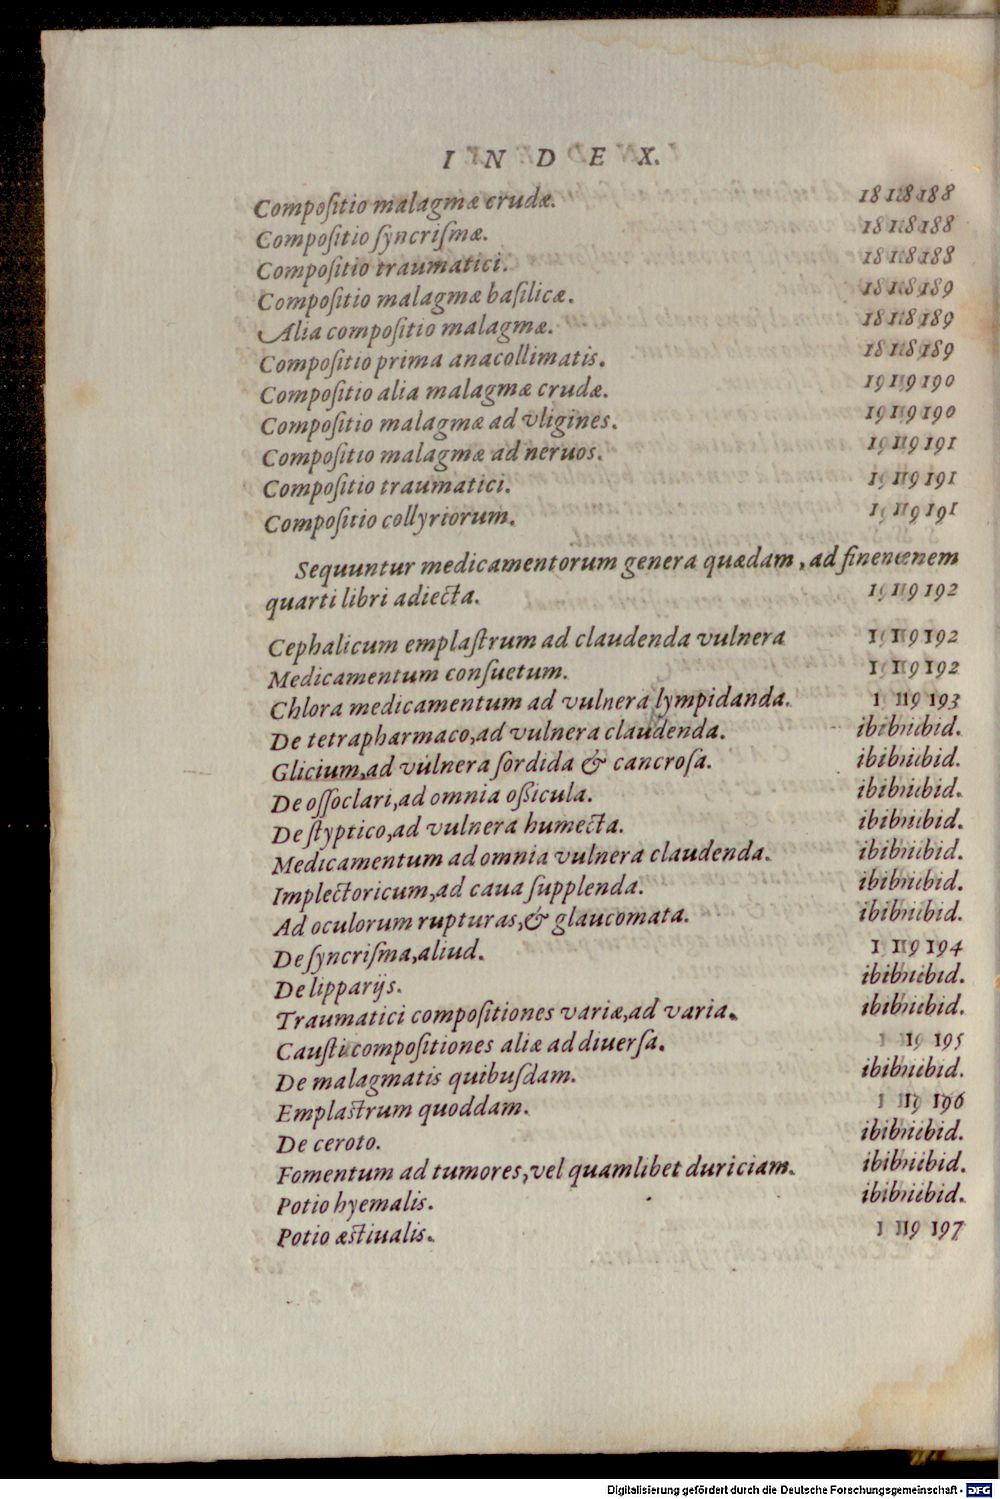 INDEX.
Compoſitio malagmæ crudæ. 188
Compoſitio ſyncriſmæ. 188
Compoſitio traumatici. 188
Compoſitio malagmæ baſilicæ. 189
Alia compoſitio malagmæ. 189
Compoſitio prima anacollimatis. 189
Compoſitio alia malagmæ crudæ. 190
Compoſitio malagmæ ad vligines. 190
Compoſitio malagmæ ad neruos. 191
Compoſitio traumatici. 191
Compoſitio collyriorum. 191
Sequuntur medicamentorum genera quædam, ad finem
quarti libri adiecta. 192
Cephalicum emplaſtrum ad claudenda vulnera 192
Medicamentum conſuetum. 192
Chlora medicamentum ad vulnera lympidanda. 193
De tetrapharmaco, ad vulnera claudenda. ibid.
Glicium, ad vulnera ſordida & cancroſa. ibid.
De oſſoclari, ad omnia oßicula. ibid.
De ſtyptico, ad vulnera humecta. ibid.
Medicamentum ad omnia vulnera claudenda. ibid.
Implectoricum, ad caua ſupplenda. ibid.
Ad oculorum rupturas, & glaucomata. ibid.
De ſyncriſma, aliud. 194
De lipparijs. ibid.
Traumatici compoſitiones variæ, ad varia. ibid.
Cauſti compoſitiones aliæ ad diuerſa. 195
De malagmatis quibuſdam. ibid.
Emplaſtrum quoddam. 196
De ceroto. ibid.
Fomentum ad tumores, vel quamlibet duriciam. ibid.
Potio hyemalis. ibid.
Potio æſtiualis. 197
Digitalisierung gefördert durch die Deutsche Forschungsgemeinschaft - DFG